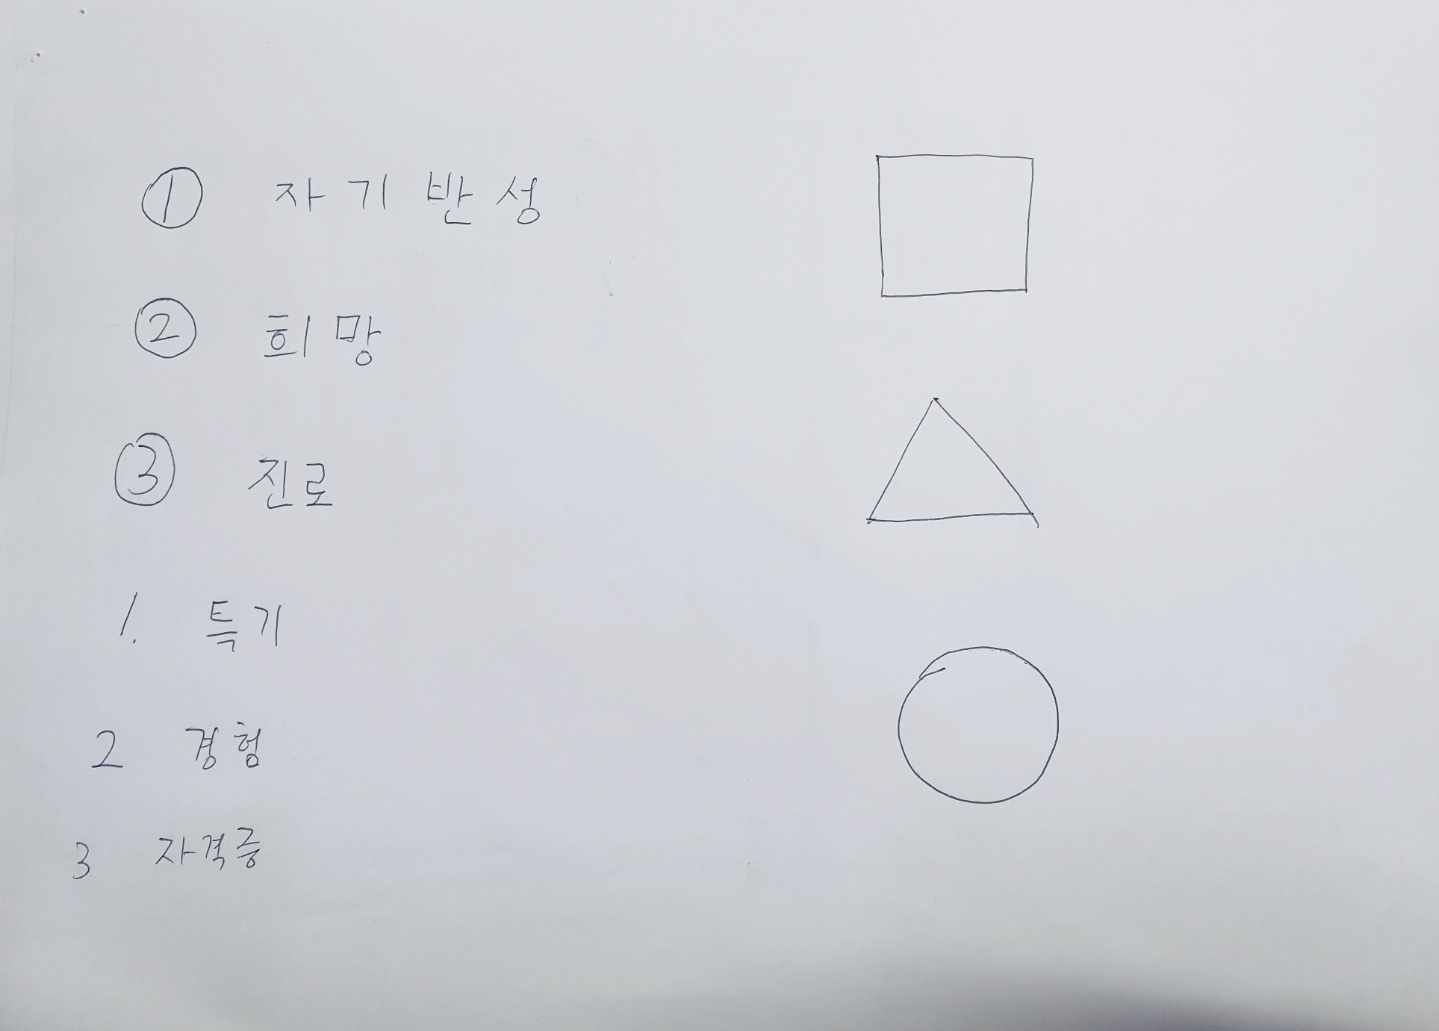 ① 자기반성
② 희망
③ 진로
1. 특기
2 경험
3 자격증